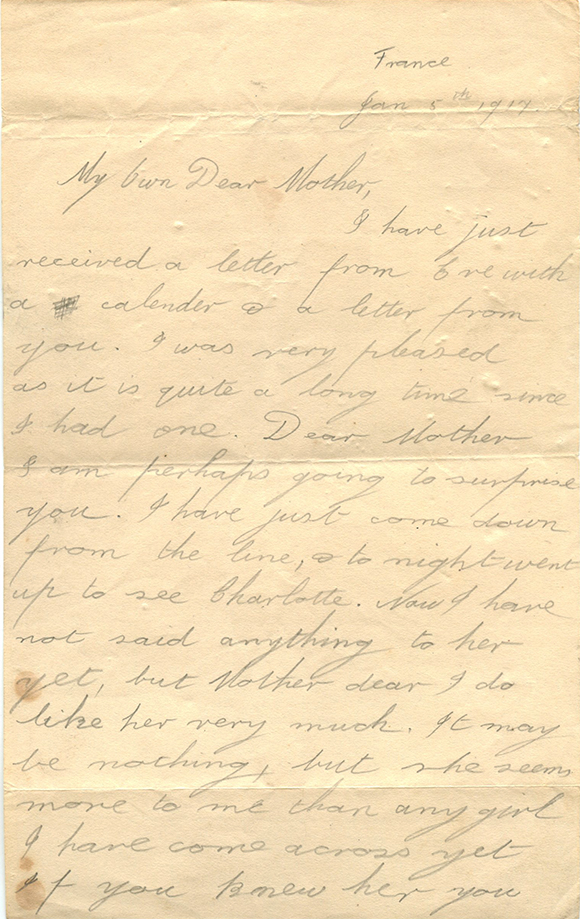 France.
Jan 5th 1917.
My Own Dear Mother,
I have just
received a letter from Eve with
a calender & a letter from
you. I was very pleased
as it is quite a long time since
I had one. Dear Mother
I am perhaps going to surprise
you. I have just come down
from the line, & to night went
up to see Charlotte. Now I have
not said anything to her
yet, but Mother dear I do
like her very much. It may
be nothing, but she seems
more to me than any girl
I have come across yet
If you knew her you